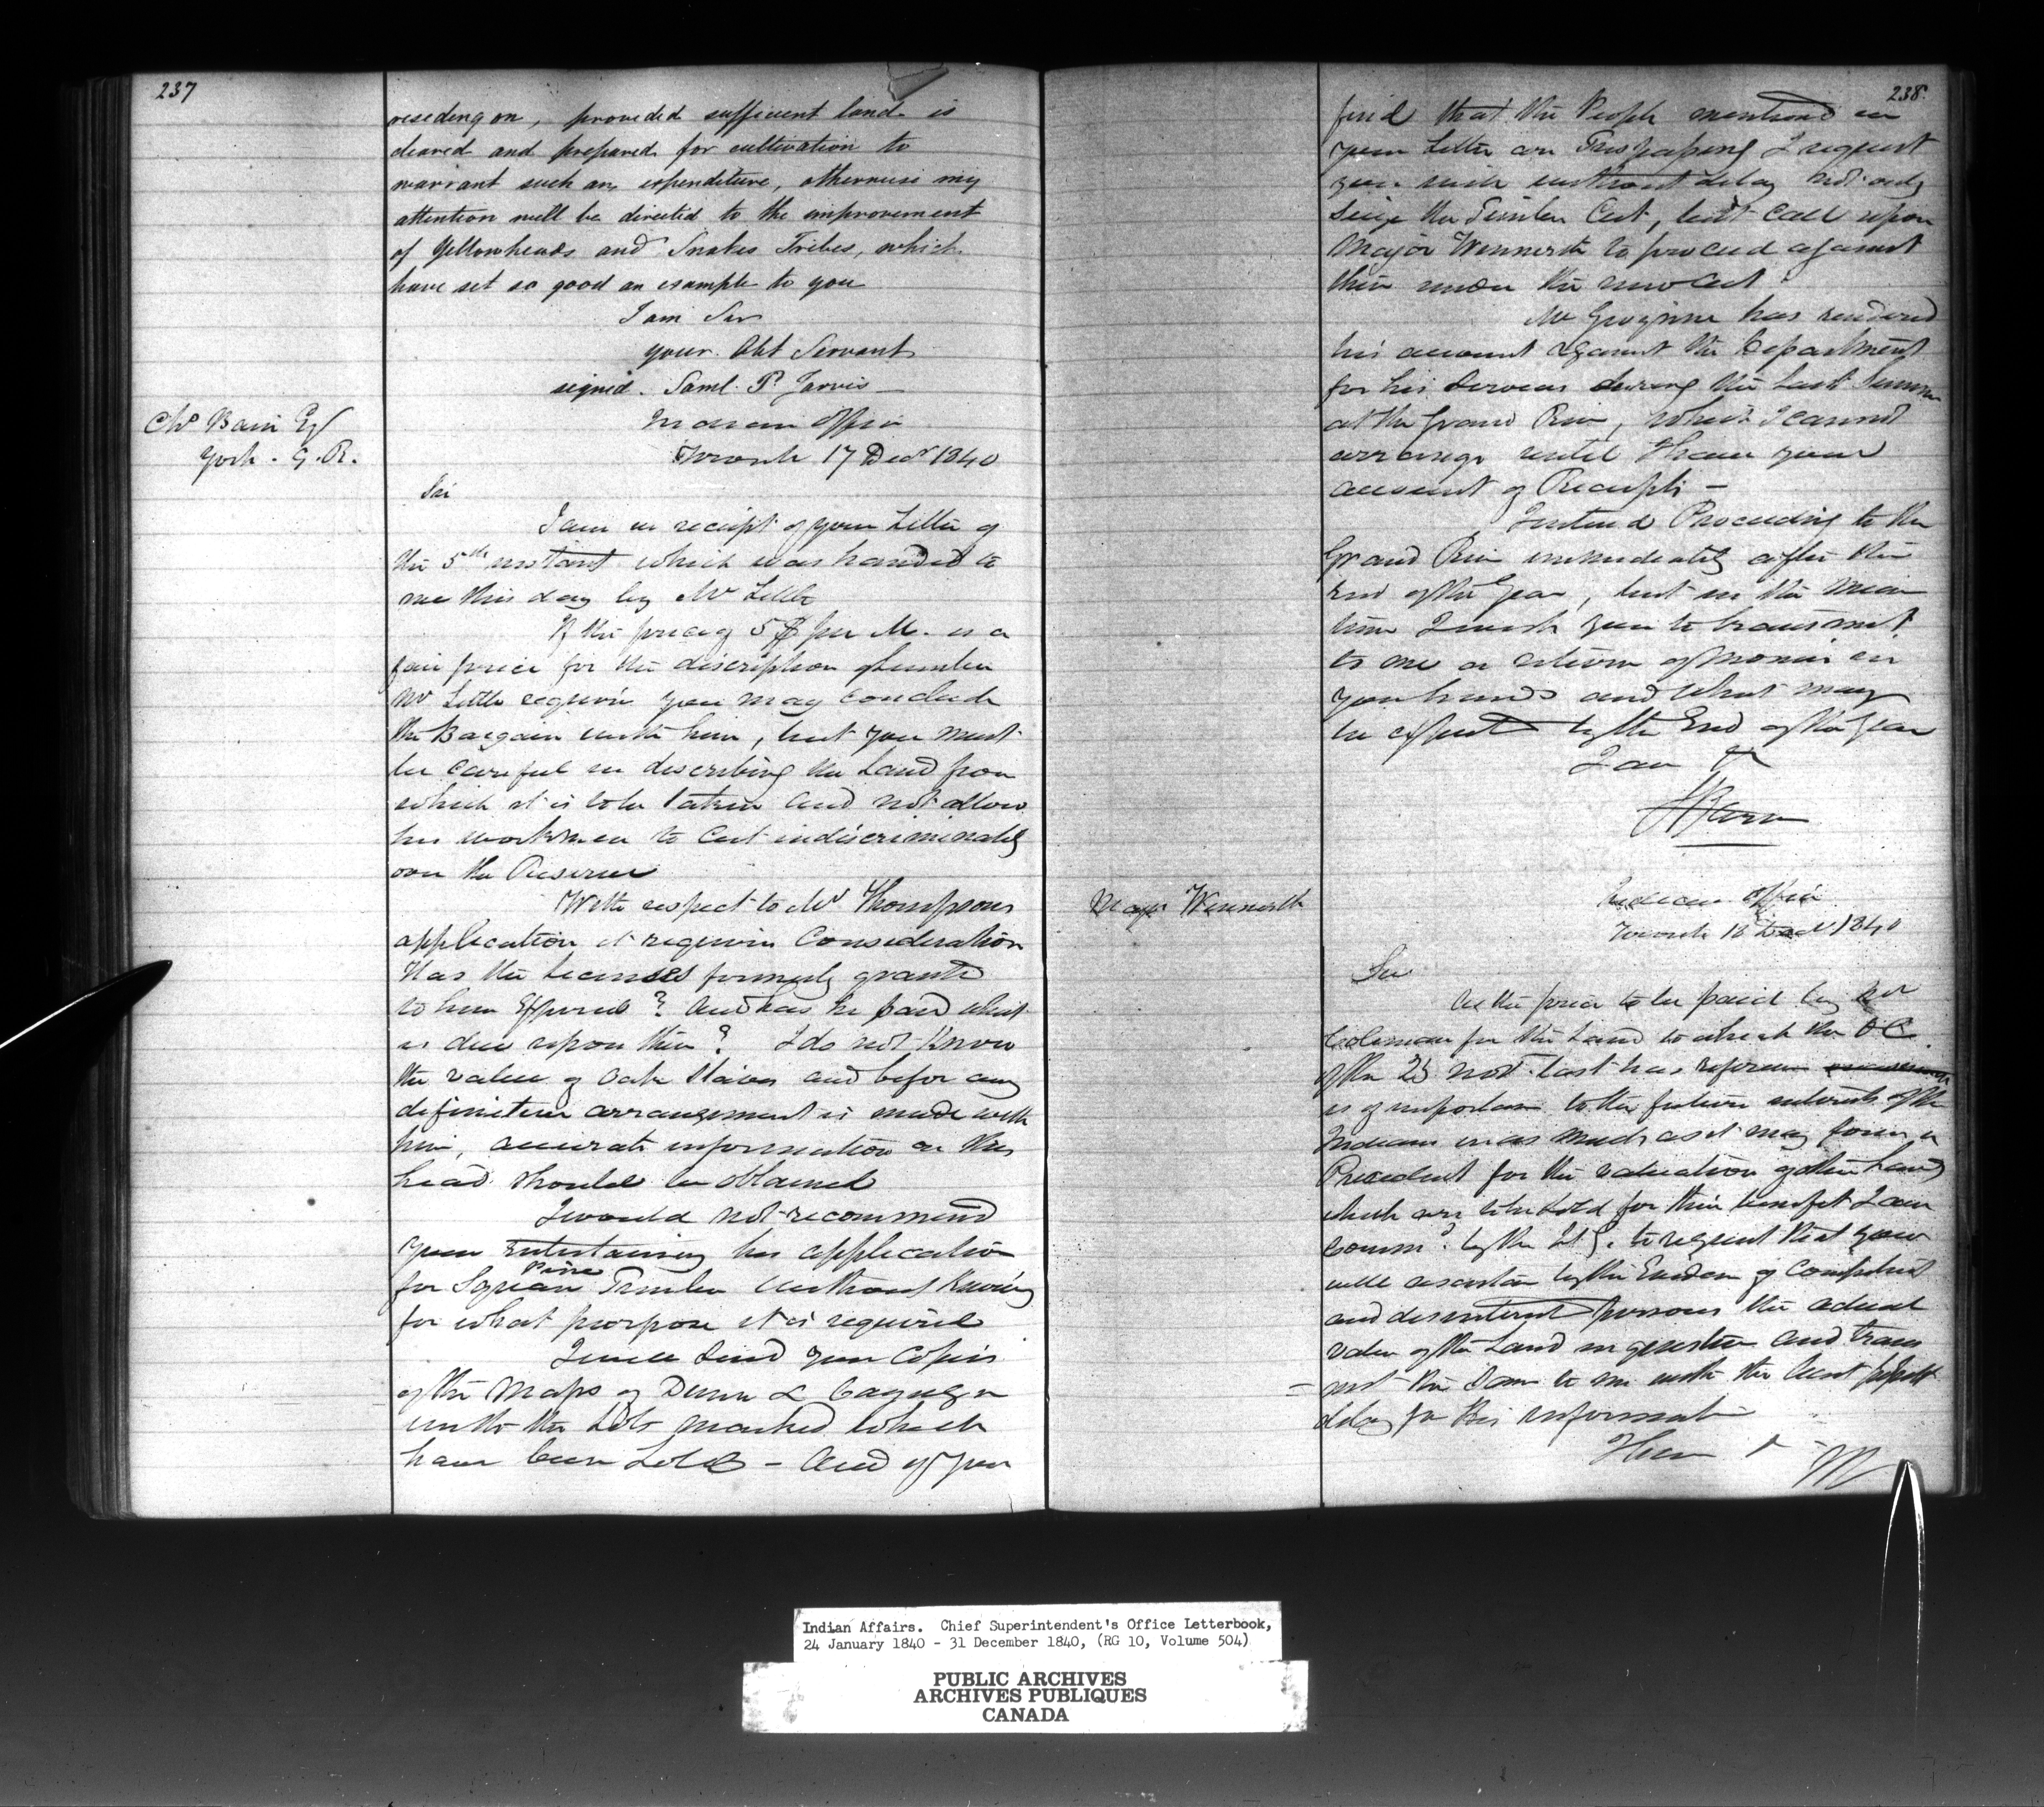 237
residing on, provided sufficient land is
cleared and prepared for cultivation to
warrant such an expenditure, otherwise my
attention will be directed to the improvement
of Yellowheads and Snakes Tribes, which
have set so good an example to you
I am Sir
your Obt Servant
signed. Saml. P. Jarvis
Chs Bain Esq
York - G. R.
Indian Office
Toronto 17 Decr 1840
Sir
I am in receipt of your Letter of
the 5th instant which was handed to
me this day by Mr Little
If the price of 5$ per M. is a
fair price for the discription of lumber
Mr Little requires you may conclude
the Bargain with him, but you must
be careful in describing the Land from
which it is to be taken and not allow
his workmen to cut indiscriminately
over the Reserve
With respect to Mr Thompsons
application it requires Consideration
Has the licenses formerly granted
to him Expired? and has he paid what
is due upon them? I do not Know
the value of Oak Staves and before any
definitive arrangement is made with
him, accurate information on this
head should be obtained
I would not recommend
your entertaining his application
for Square Pine Timber without Knowing
for what purpose it is required
I will send you Copies
of the Maps of Dunn & Cayuga
with the Lots marked which
have been Sold - And if you
238.
find that the People mentioned in
your Letter are Trespassing I request
you will without delay not only
seize the Timber Cut, but call upon
Major Winniett to proceed against
them under the new Act
Mr Gwynne has rendered
his account against the Department
for his services during the last Summer
at the Grand River, which I cannot
arrange until I have your
account of Receipts -
I intend Proceeding to the
Grand River immediately after the
End of the Year, but in the mean
time I wish you to transmit
to me a return of monies in
your hands and what may
be expected by the End of the Year
I am &c
Major Winniett
Indian Office
Toronto 18 Decr 1840
Sir
As the price to be paid by Mr
Coleman for the Land to which the O.C.
of the 25 Novr last has reference
is of importance to the future interests of the
Indians in as much as it may form a
Precedent for the valuation of other Lands
which are to be sold for their benefit I am
Commd. by the Lt G. to request that you
will ascertain by the Evidence of Competent
and disinterested persons the actual
value of the Land in question and trans
-mit the same to me with the least possible
delay for His information
I have &c
Indian Affairs. Chief Superintendent's Office Letterbook,
24 January 1840 - 31 December 1840, (RG 10, Volume 504)
PUBLIC ARCHIVES
ARCHIVES PUBLIQUES
CANADA